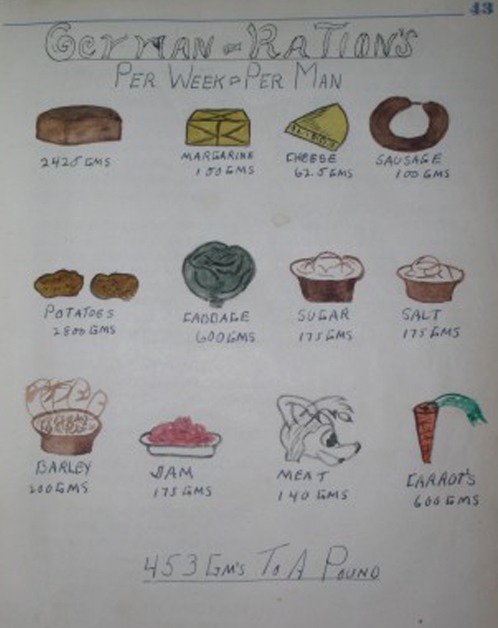 43
GERMAN - RATION'S
PER WEEK = PER MAN
2425 GMS
MARGARINE
150 GMS
CHEESE
62.5 GMS
SAUSAGE
100 GMS
POTATOES
2800 GMS
CABBAGE
600 GMS
SUGAR
175 GMS
SALT
175 GMS
BARLEY
200 GMS
JAM
175 GMS
MEAT
140 GMS
CARROT'S
600 GMS
453 GM'S TO A POUND